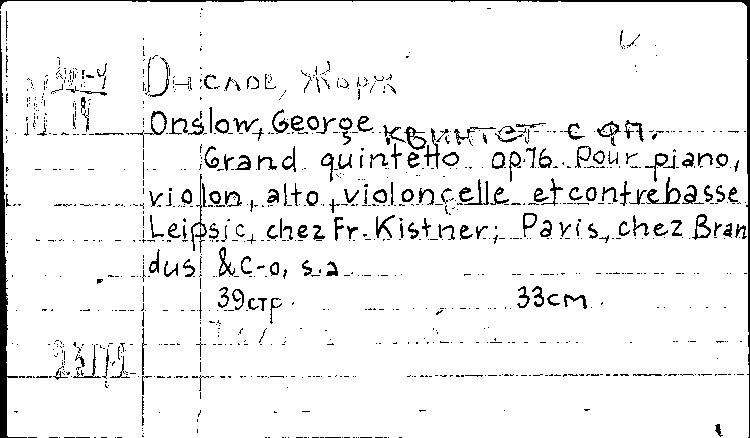 Онслов, Жорж
Onslow, George
квинтет с фп.
Grand quintetto op76 Pour piano,
violon, alto, violoncelle et contrebasse
Leipsic, chez Fr. Kistner; Paris, chez Bran
dus & C-o, s.a
39стр. 33см.